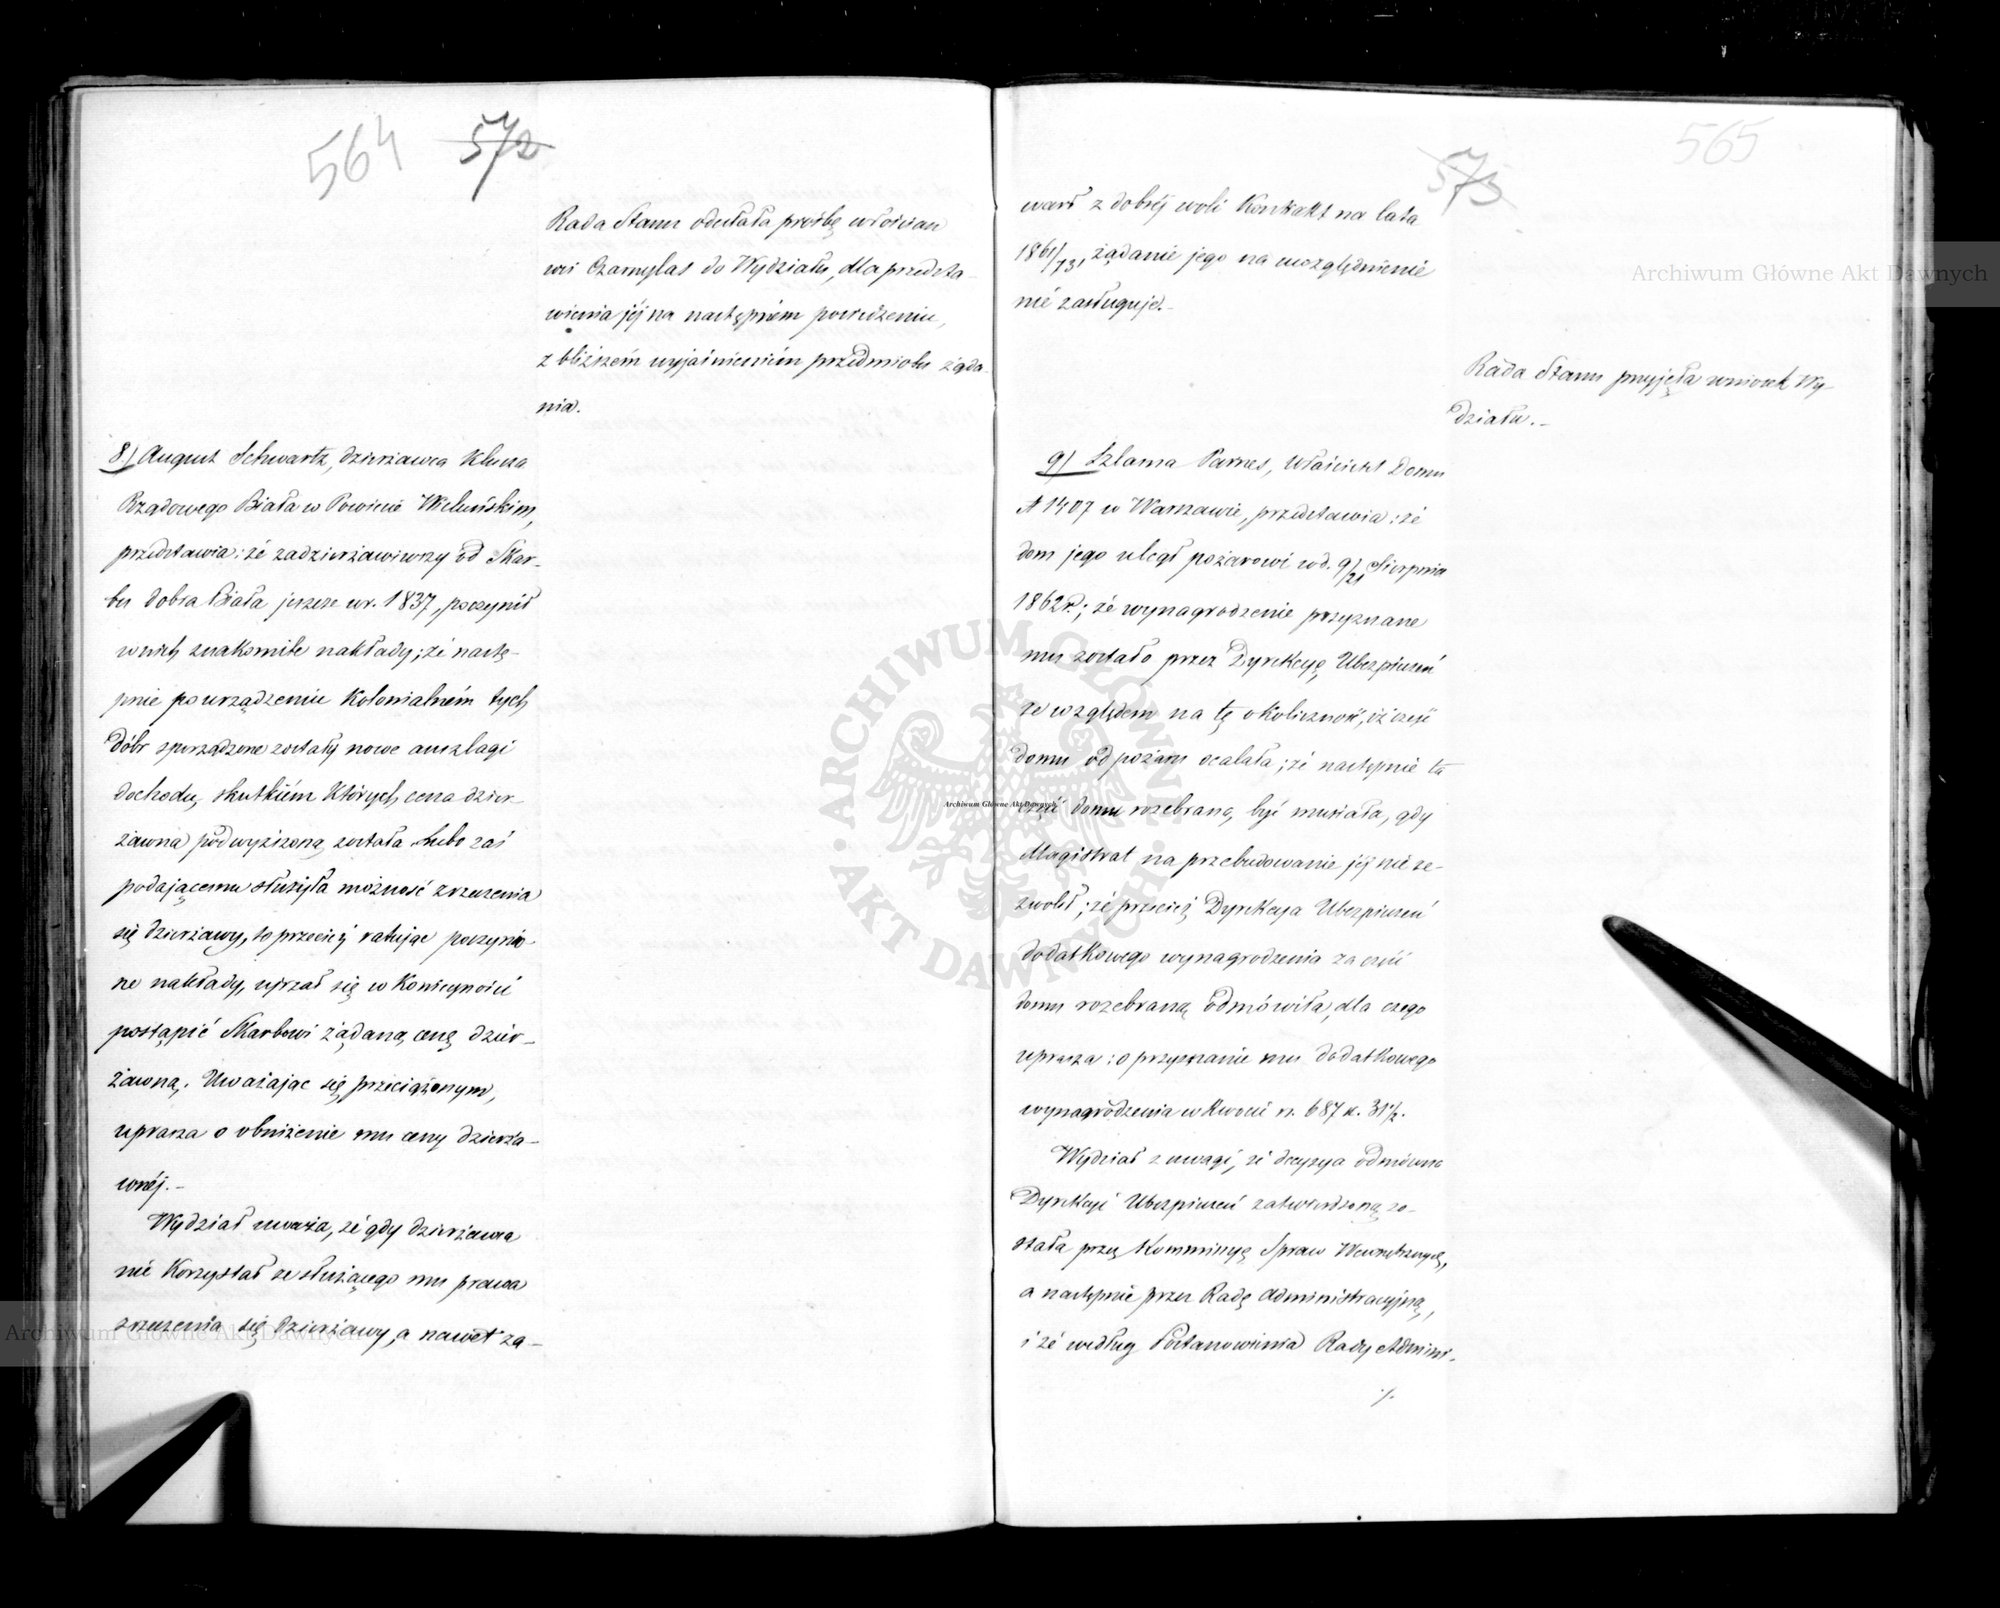 564 572
Rada Stanu odesłała prośbę włościan
wsi Czarnylas do Wydziału, dla przedsta-
wienia jéj na następném posiedzeniu,
z bliższém wyjaśnieniem przedmiotu żąda-
nia.
8.) August Schwartz, dzierżawca Klucza
Rządowego Biała w Powiecie Wieluńskim,
przedstawia: że zadzierżawiwszy od Skar-
bu dobra Biała jeszcze w r. 1837, poczynił
w nich znakomite nakłady; że nastę-
pnie po urządzeniu Kolonialném tych
dóbr sporządzone zostały nowe anszlagi
dochodu, skutkiem których cena dzier-
żawna podwyższoną została. Lubo zaś
podającemu służyła możność zrzeczenia
się dzierżawy, to przecież ratując poczynio-
ne nakłady, ujrzał się w Konieczności
postąpić Skarbowi żądaną cenę dzier-
żawną. Uważając się przeciążonym,
uprasza o obniżenie mu ceny dzierża-
wnéj.-
Wydział uważa, że gdy dzierżawca
nie Korzystał ze służącego mu prawa
zrzeczenia się dzierżawy, a nawet za-
565
573
warł z dobréj woli Kontrakt na lata
1861/73, żądanie jego na uwzględnienie
nie zasługuje.-
Rada Stanu przyjęła wniosek Wy-
działu.-
9) Szlama Parnes, Właściciel Domu
№ 1407 w Warszawie, przedstawia: że
dom jego uległ pożarowi w d. 9/21 Sierpnia
1862 r.; że wynagrodzenie przyznane
mu zostało przez Dyrekcyę Ubezpieczeń
ze względem na tę okoliczność, iż część
domu od pożaru ocalała; że następnie ta
część domu rozebraną być musiała, gdy
Magistrat na przebudowanie jéj nie ze-
zwolił; że przecież Dyrekcya Ubezpieczeń
dodatkowego wynagrodzenia za część
domu rozebraną odmówiła, dla czego
uprasza: o przyznanie mu dodatkowego
wynagrodzenia w kwocie rs. 687 k. 31½.
Wydział z uwagi, że decyzya odmowna
Dyrekcyi Ubezpieczeń zatwierdzoną zo-
stała przez Kommissyę Spraw Wewnętrznych,
a następnie przez Radę Administracyjną,
i że według Postanowienia Rady Admini-
./.
Archiwum Główne Akt Dawnych
Archiwum Główne Akt Dawnych
Archiwum Główne Akt Dawnych
ARCHIWUM GŁÓWNE · AKT DAWNYCH ·